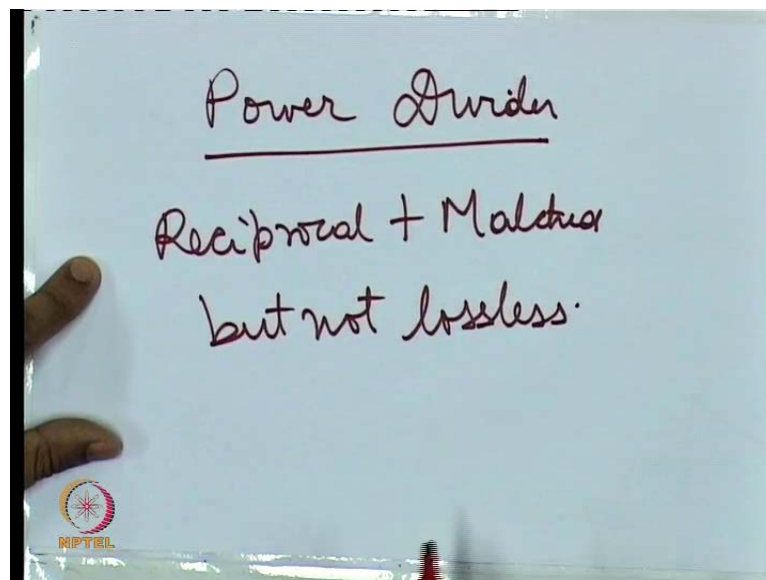 Power Divider
Reciprocal + Matched
but not lossless.
NPTEL